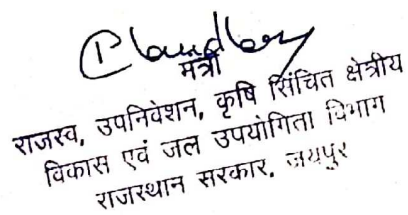 मंत्री
राजस्व, उपनिवेशन, कृषि सिंचित क्षेत्रीय
विकास एवं जल उपयोगिता विभाग
राजस्थान सरकार, जयपुर